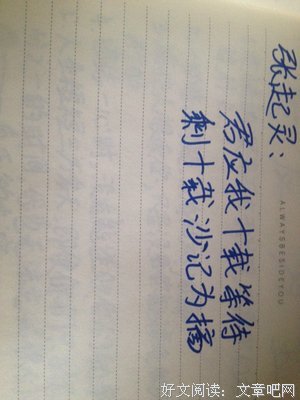 张起灵：
君应我十载等待
剩十载沙记为描
ALWAYSBESIDEYOU
好文阅读：文章吧网